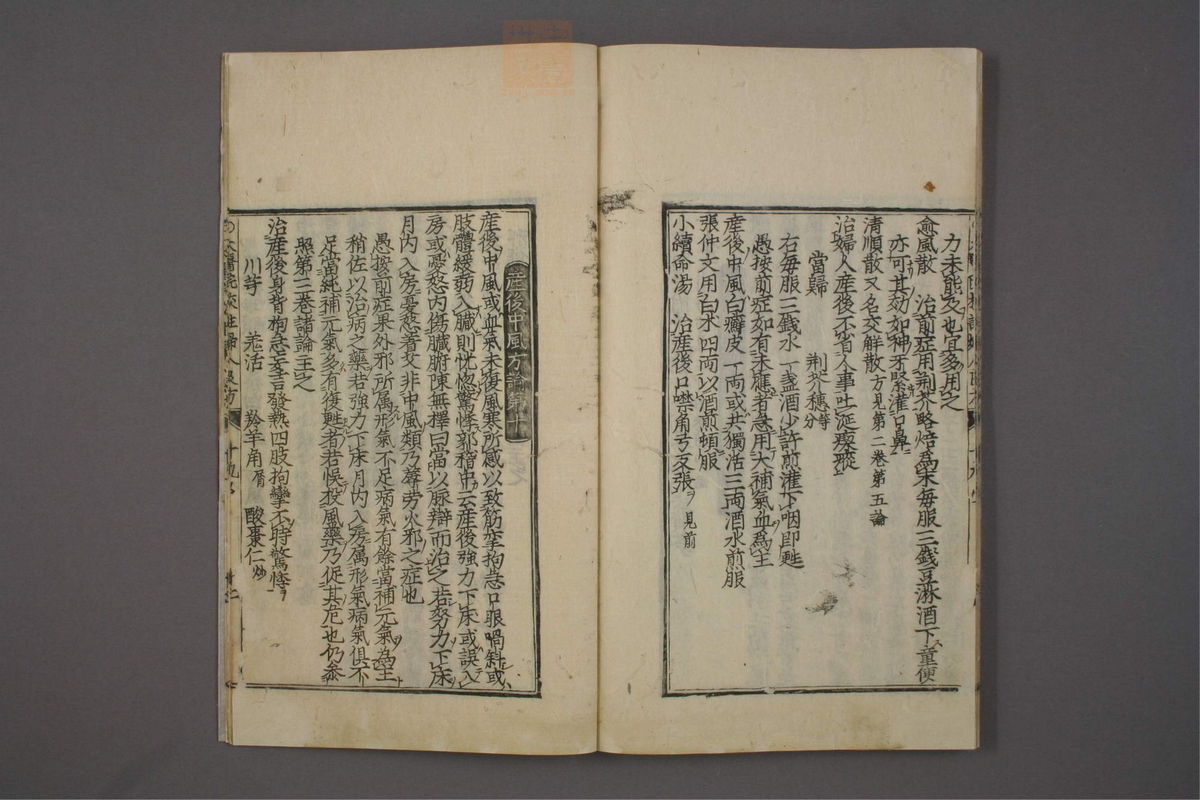 力未能及也宜多用之
愈風散 治前症用荆芥略焙為末毎服三錢豆淋酒下童便
亦可其効如神牙緊灌口鼻
清順散又名交解散方見第二巻第五論
治婦人産後不省人事吐涎瘈瘲
當歸 荆芥穗等分
右毎服三錢水一盞酒少許煎灌下咽即甦
愚按前症如有未應者急用大補氣血為主
産後中風白癬皮一両或共獨活三両酒水煎服
張仲文用白朮四両以酒煎頓服
小續命湯 治産後口噤角弓反張見前
産後中風方論第十
産後中風或血氣未復風寒所感以致筋攣拘急口眼喎斜或
肢體緩弱入臓則恍惚驚悸郭稽中云産後強力下床或誤入
房或憂愁内傷臓腑陳無擇曰當以脉辯而治之若努力下床
月内入房憂愁著女非中風類乃蓐労火邪之症也
愚按前症果外邪所属形氣不足病氣有餘當補元氣為主
稍佐以治病之藥若強力下床月内入房属形氣病氣俱不
足當純補元氣多有復甦者若悞投風藥乃促其危也仍參
照第三巻諸論主之
治産後身背拘急至言發熱四肢拘攣不時驚悸
川芎 羌活 羚羊角屑 酸棗仁炒
太醫院校註婦人良方